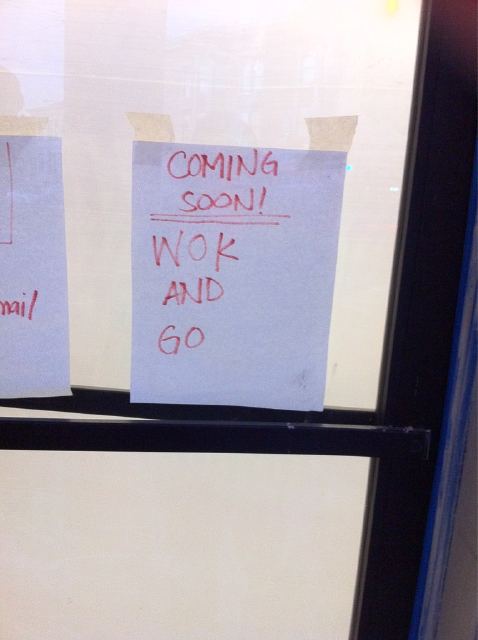 COMING
SOON!
WOK
AND
GO